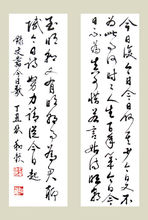 今日復今日今日何其少今日又不
為此事何時了人生百年幾今日今
日不為真可惜若言姑待明朝
至明朝又有明朝事為君聊
賦今日詩努力請從今日起
錄文嘉今日歌